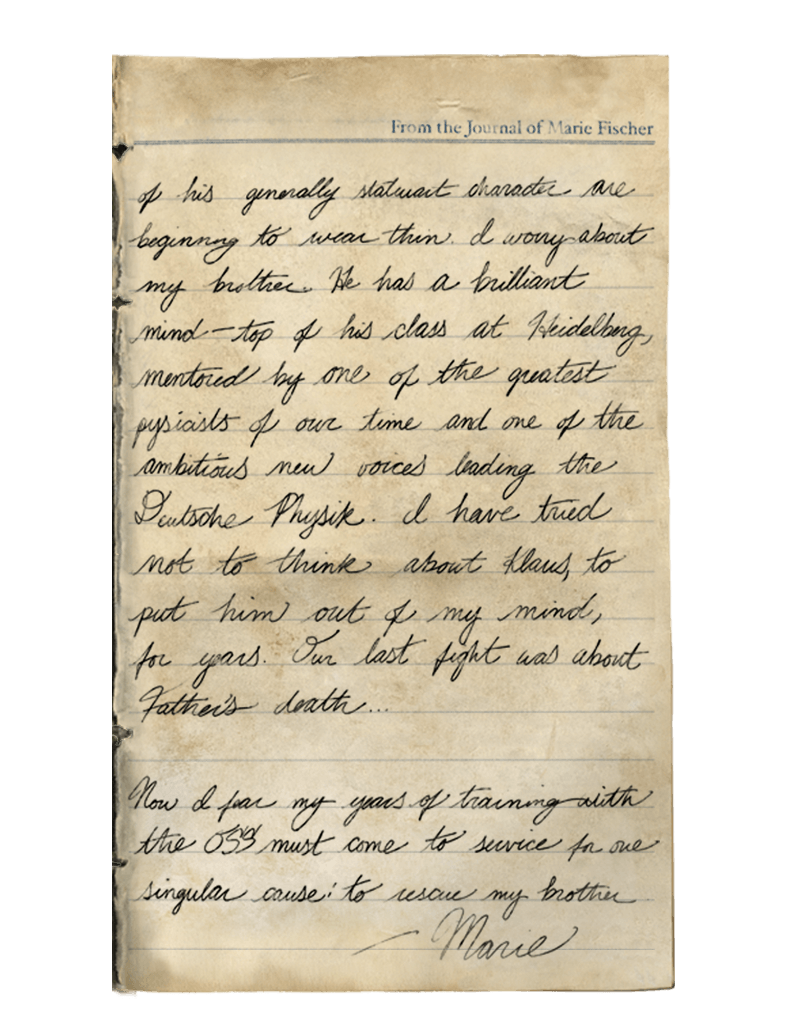 From the Journal of Marie Fischer
of his generally stalwart character are
beginning to wear thin. I worry about
my brother. He has a brilliant
mind—top of his class at Heidelberg,
mentored by one of the greatest
pysicists of our time and one of the
ambitious new voices leading the
Deutsche Physik. I have tried
not to think about Klaus, to
put him out of my mind,
for years. Our last fight was about
Father's death...
Now I fear my years of training with
the OSS must come to service for one
singular cause: to rescue my brother
— Marie